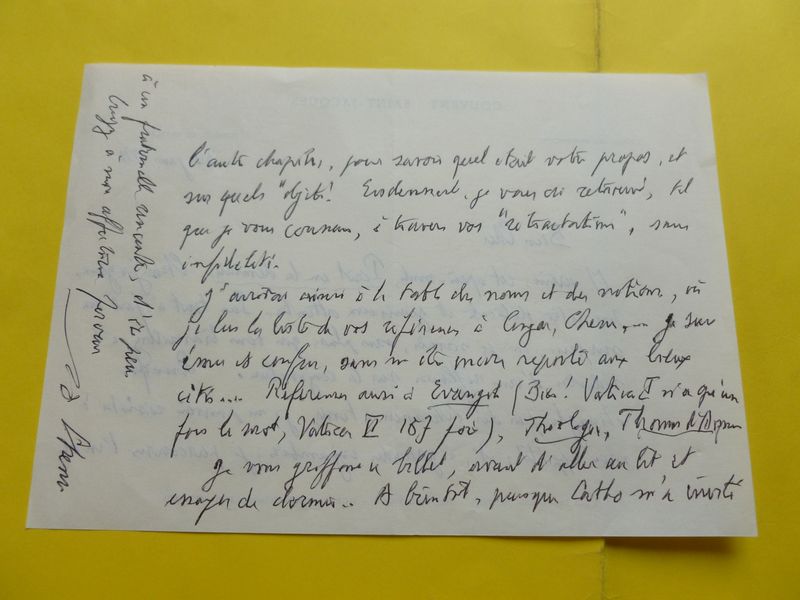 l'autre chapitre, pour savoir quel était votre propos, et
sur quels "objets! Evidemment, je vous ai retrouvé, tel
que je vous connais, à travers vos "rétractations", sans
infidélité.
J' aussi à la table des noms et des notions, où
je lus la liste de vos références à Congar, Chenu, ... Je suis
ému et confus, sans m'être encore reporté aux lieux
cités.... Références aussi à Evangile (Bien! Vatican I n'a qu'un
fois le mot, Vatican II 187 fois), Théologie, Thomas d'Aquin
Je vous griffonne ce billet, avant d'aller au lit et
essayer de dormir... A bientôt, puisque Catho m'a invité
à un fraternelle rencontre,
à mon affectueuse ferveur
COUVENT SAINT-JACQUES